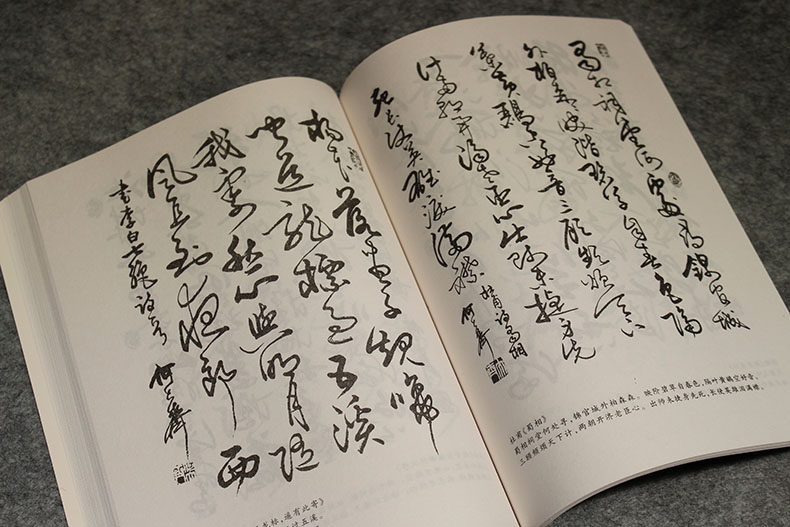 杨花落尽子规啼
闻道龙标过五溪
我寄愁心与明月随
风直到夜郎西
书李白七绝诗
龙标,遥有此寄》
过五溪。
蜀相祠堂何处寻锦官城
外柏森森映阶碧草自春色隔
叶黄鹂空好音三顾频烦天下
计两朝开济老臣心出师未捷身先
死长使英雄泪满襟 杜甫诗蜀相
杜甫《蜀相》
蜀相祠堂何处寻,锦官城外柏森森。映阶碧草自春色,隔叶黄鹂空好音。
三顾频烦天下计,两朝开济老臣心。出师未捷身先死,长使英雄泪满襟。